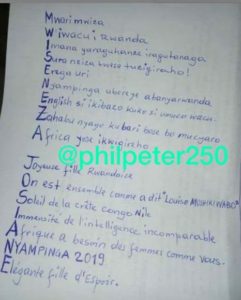 Mwari mwiza
Wiwacu i Rwanda
Imana yaraguhanze iraguhanaga
Suro nziza twese tuzigiraho!
Erega Uri
Nyampinga ubereye abanyarwanda
English si ikibazo kuko si umuco wacu.
Zahabu nyayo kubari bose bo mucyaro
Africa yose ikwigireho
@philpeter250
Joyeuse fille Rwandaise
On est ensemble comme a dit "Louise MUSHIKIWABO"
Soleil de la crête Congo Nile
Immensité de l'intelligence incomparable
Afrique a besoin des femmes comme vous.
NYAMPINGA 2019.
Elégante fille d'Espoir.